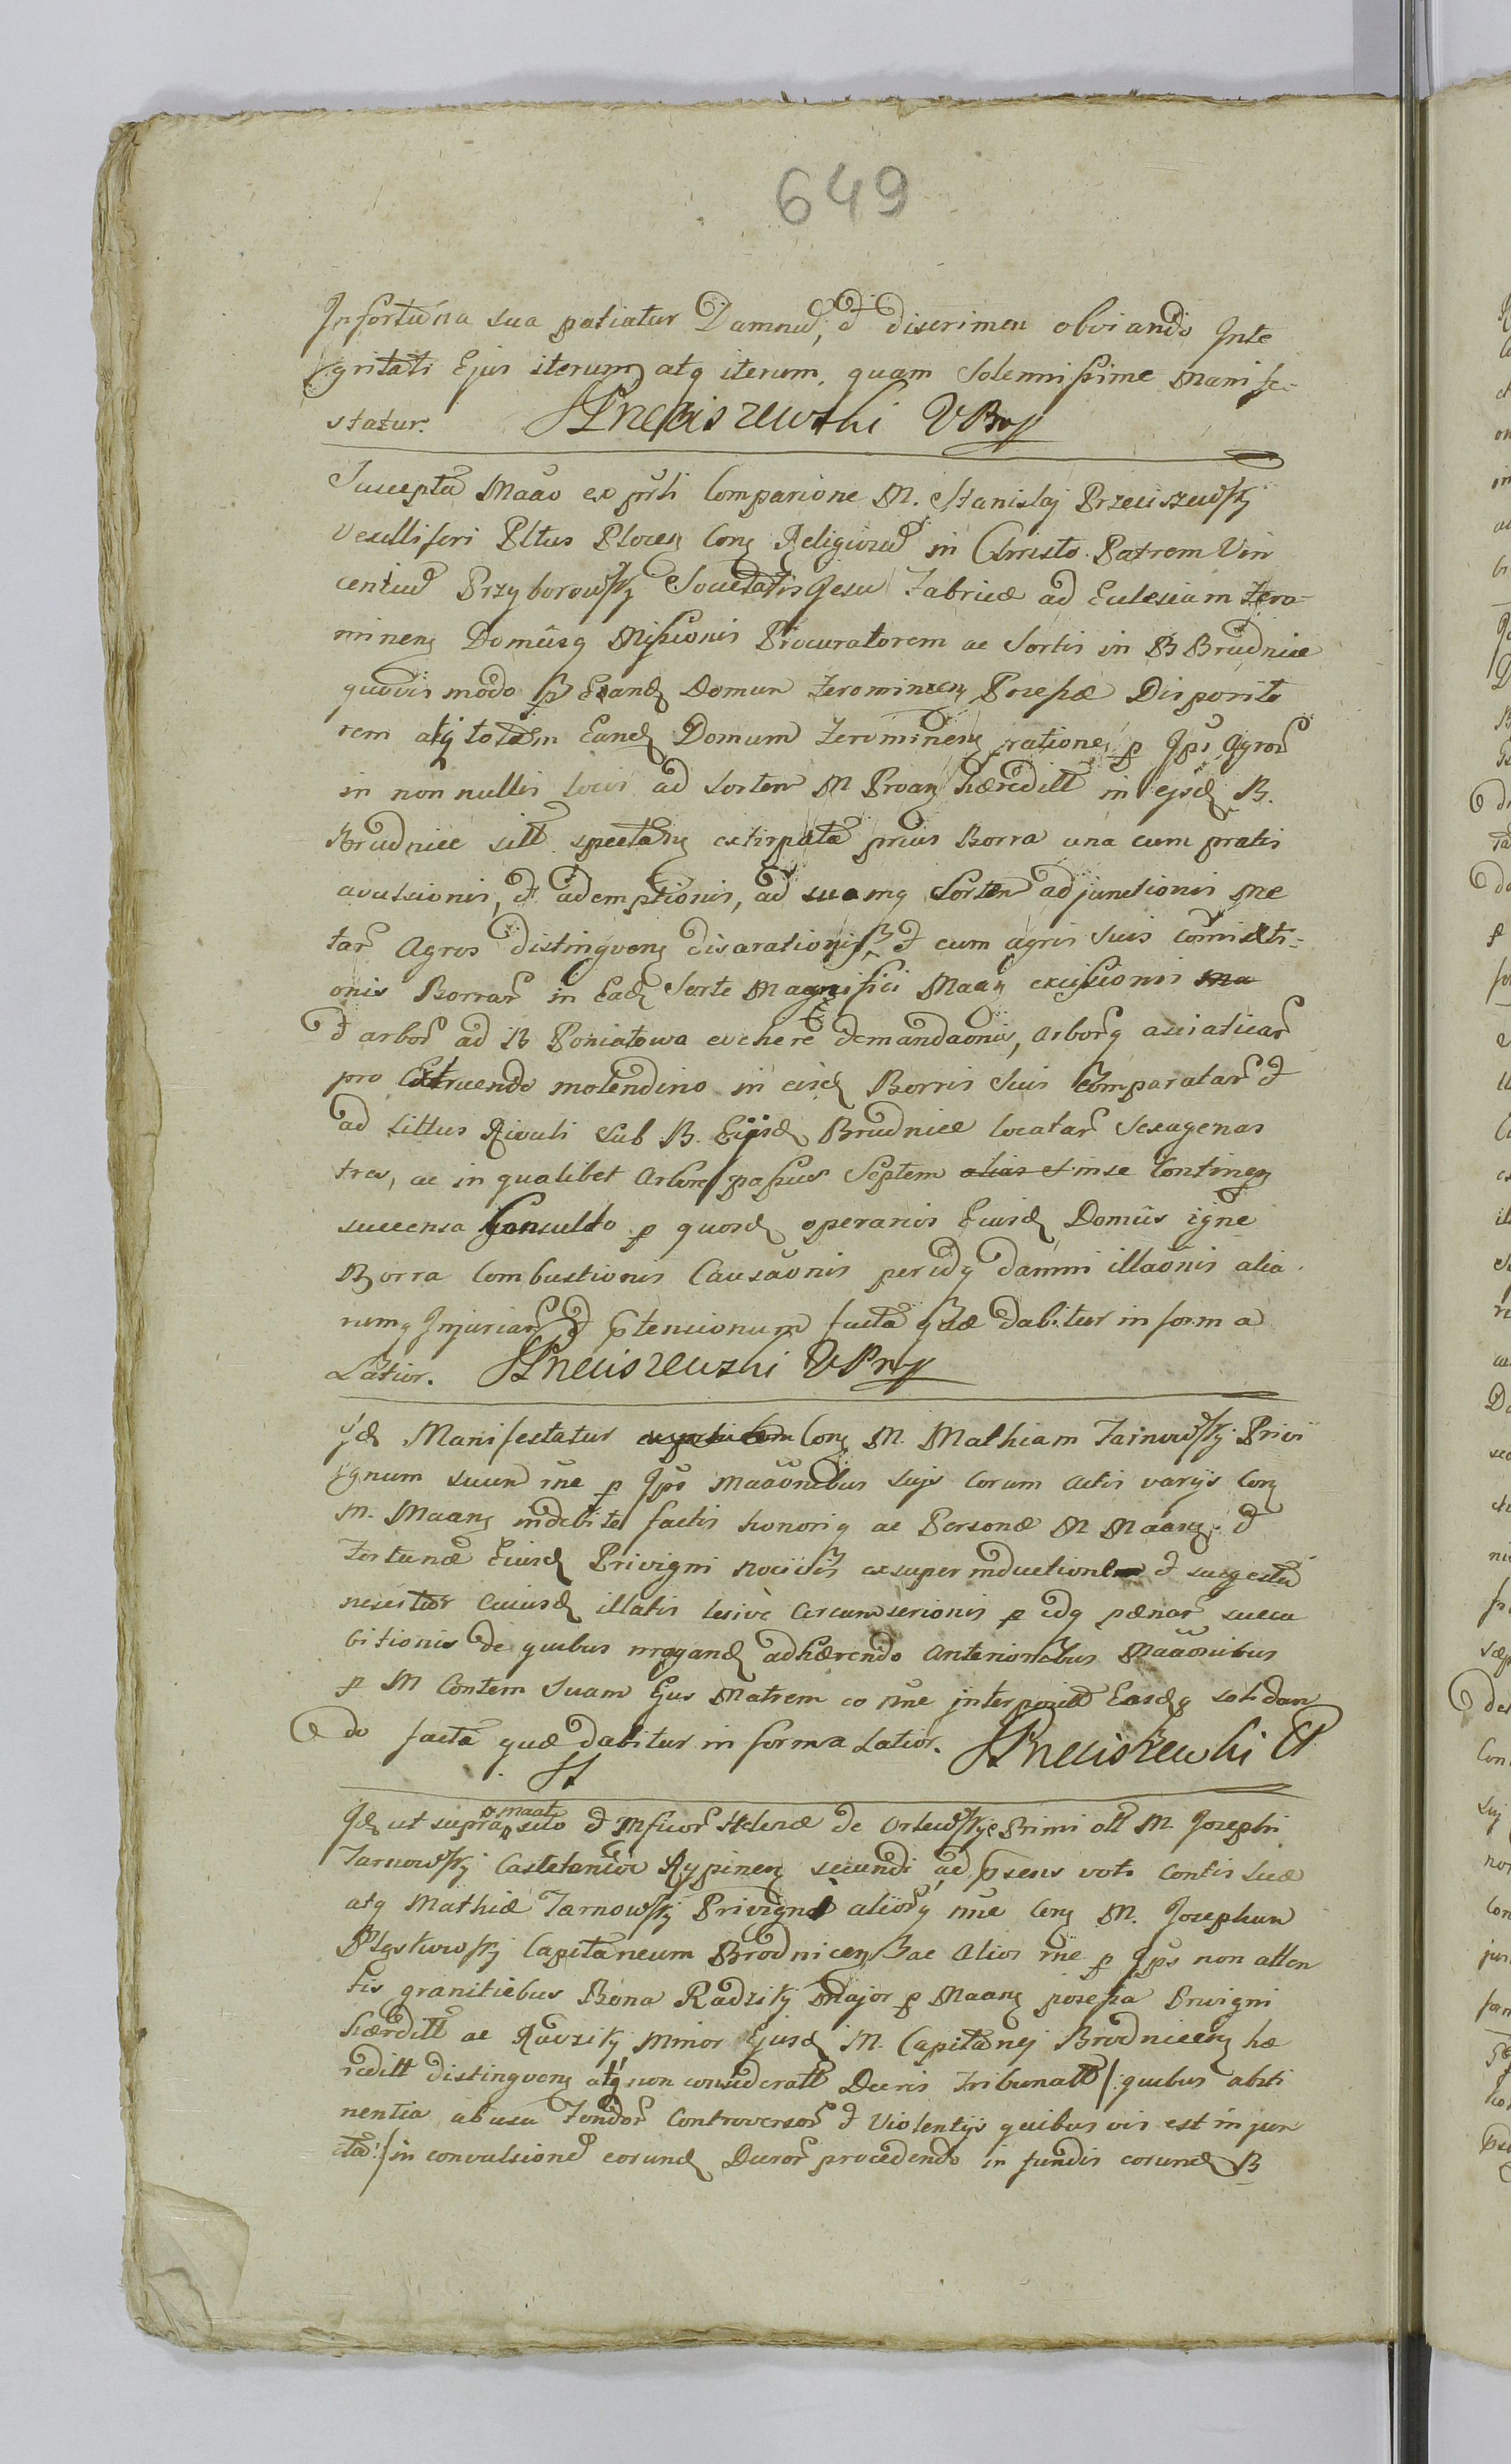 649
Infortunia sua patiatur Damnu, et discrimen obviando Inte
gritati Ejus iterum atq iterum, quam Solemnissime manife-
statur. SPrzeciszewski VPr
Suscepta Maão ex prsti Comparione M. Stanislaj Przeciszewskj
Vexilliferi Pltus Plocen Con Religiosu in Christo Patrem Vin
centiu Przyborowskj Societatis Jesu Fabricæ ad Eclesiam Zero-
minen Domusq Missionis Procuratorem ac Sortis in B Brudnice
quovis modo p Eand Domum Zerominen Possessæ Disposito
rem atq totam Eand Domum Zerominen ratione p Ips Agror
in non nullis locis ad Sortem M Proan hæredill in ejsd B.
Brudnice sitt spectan extirpata prius Borra una cum pratis
avulsionis, et ademptionis, ad suamq Sortem adjunctionis me
tar Agros distingven disarationis et cum agris Suis Comixti-
onis Borrar in Ead Sorte Magnifici Maan excissionis ma
et arbor ad B Poniatowa evehere demandaonis, Arborq asciaticar
pro Extruendo molendino in eisd Borris Suis Comparatar et
ad littus Rivuli Sub B. Ejusd Brudnice locatar Sexagenas
tres, ac in qualibet Arbore passus Septem alias et in se Continen
succensa Consulto p quosd operarios Eiusd Domus igne
Borra Combustionis Causaonis per idq damni illaonis alia
rumq Injuriar et ptensionum facta quæ dabitur in forma
Latior. SPrzeciszewski VPr
Id Manifestatur Con M. Mathiam Tarnowskj Privi
gnum suum rne p Ips Maaonibus Sujs Coram Actis varijs Con
M. Maan indebite factis honoriq ac Personæ M Maan et
Fortunæ Eiusd Privigni nocivis ac super inductione et sugestu
nescitur Cuiusd illatis lesive Circumscrionis p idq pænar succu
bitionis de quibus mragand adhærendo Anterioribus Maaonibus
p M Contem Suam Ejus Matrem eo nne interpositt Easdq solidan
do facta quæ dabitur in forma Latior. SPrzeciszewski VP
Id ut supra p maat suo et Mficor Helenæ de Orlewskje Primi olt M Josephi
Tarnowskj Castelanior Rypinen secundi ad psens voti Contis Suæ
atq Mathiæ Tarnowskj Privigni aliorq nne Con M. Josephum
Pląskowskj Capitaneum Brodnicen ac Alios rne p Ips non atten
tis granitiebus Bona Radzikj Major p Maan possessa Privigni
hærditt ac Radzikj Minor Ejusd M. Capitanej Brodnicen hæ
reditt distingven atq non consideratt Decris Tribunalt /: quibus absti
nentia ab usu Fundor Controversor et Violentijs quibus vis est injun
cta :/ in convulsione eorund Decror procedendo in fundis eorund B